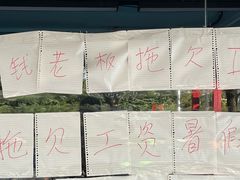 钱老板拖欠工
拖欠工资暑假